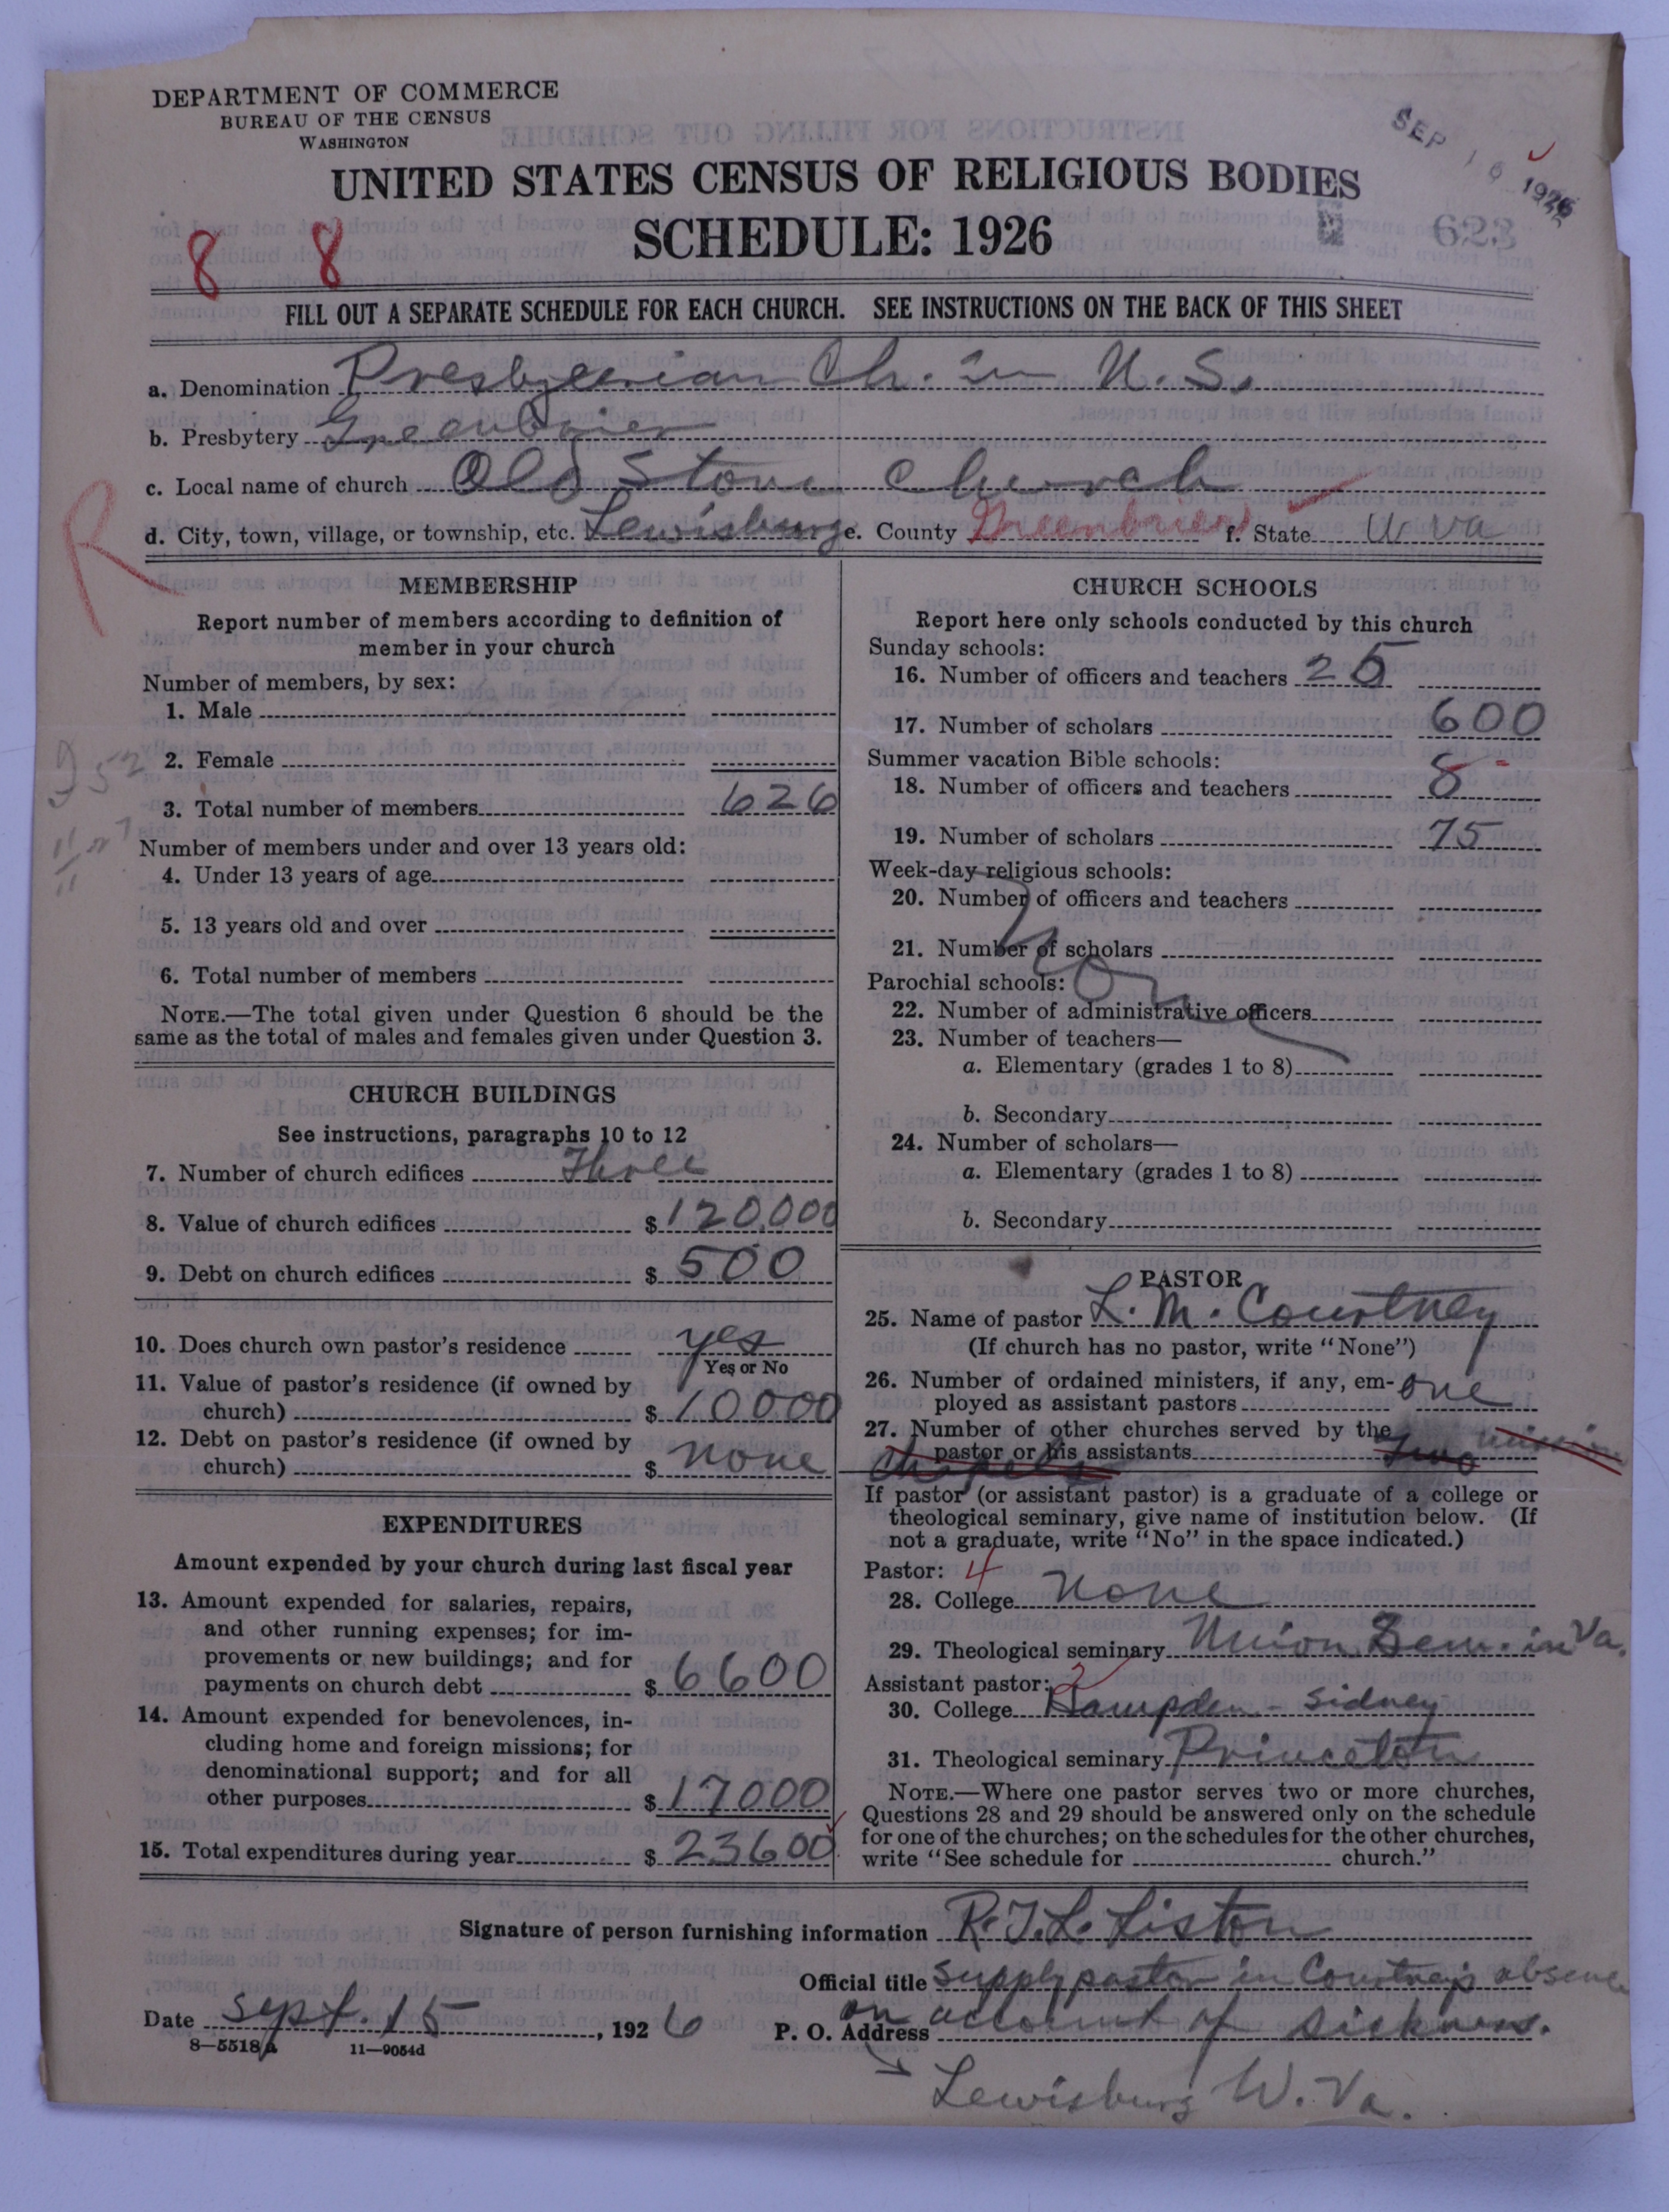 DEPARTMENT OF COMMERCE
BUREAU OF THE CENSUS
WASHINGTON
SEP 16 1926
UNITED STATES CENSUS OF RELIGIOUS BODIES
SCHEDULE: 1926
623
8 8
FILL OUT A SEPARATE SCHEDULE FOR EACH CHURCH. SEE INSTRUCTIONS ON THE BACK OF THIS SHEET
a. Denomination Presbyterian Ch. in U. S.
b. Presbytery Greenbrier
c. Local name of church Old Stone Church
d. City, town, village, or township, etc. Lewisburg e. County Greenbrier f. State W Va
R
MEMBERSHIP
Report number of members according to definition of
member in your church
Number of members, by sex:
1. Male
2. Female
952
3. Total number of members 626
Number of members under and over 13 years old:
4. Under 13 years of age
5. 13 years old and over
6. Total number of members
NOTE.—The total given under Question 6 should be the
same as the total of males and females given under Question 3.
CHURCH BUILDINGS
See instructions, paragraphs 10 to 12
7. Number of church edifices Three
8. Value of church edifices $ 120,000
9. Debt on church edifices $ 500
10. Does church own pastor's residence yes
Yes or No
11. Value of pastor's residence (if owned by
church) $ 10000
12. Debt on pastor's residence (if owned by
church) $ none
EXPENDITURES
Amount expended by your church during last fiscal year
13. Amount expended for salaries, repairs,
and other running expenses; for im-
provements or new buildings; and for
payments on church debt $ 6600
14. Amount expended for benevolences, in-
cluding home and foreign missions; for
denominational support; and for all
other purposes $ 17000
15. Total expenditures during year $ 23600
CHURCH SCHOOLS
Report here only schools conducted by this church
Sunday schools:
16. Number of officers and teachers 25
17. Number of scholars 600
Summer vacation Bible schools:
18. Number of officers and teachers 8
19. Number of scholars 75
Week-day religious schools:
20. Number of officers and teachers
21. Number of scholars
Parochial schools:
22. Number of administrative officers
23. Number of teachers—
a. Elementary (grades 1 to 8)
b. Secondary
24. Number of scholars—
a. Elementary (grades 1 to 8)
b. Secondary
PASTOR
25. Name of pastor L. M. Courtney
(If church has no pastor, write "None")
26. Number of ordained ministers, if any, em-
ployed as assistant pastors one
27. Number of other churches served by the
pastor or his assistants two mission
chapels
If pastor (or assistant pastor) is a graduate of a college or
theological seminary, give name of institution below. (If
not a graduate, write "No" in the space indicated.)
Pastor: 4
28. College none
29. Theological seminary Union Sem. in Va.
Assistant pastor: 2
30. College Hampden - Sidney
31. Theological seminary Princeton
NOTE.—Where one pastor serves two or more churches,
Questions 28 and 29 should be answered only on the schedule
for one of the churches; on the schedules for the other churches,
write "See schedule for church."
Signature of person furnishing information R. T. L. Liston
Official title Supply pastor in Courtney's absence
Date Sept. 15, 1926 P. O. Address on account of sickness.
8—5518a 11—9054d
Lewisburg W. Va.